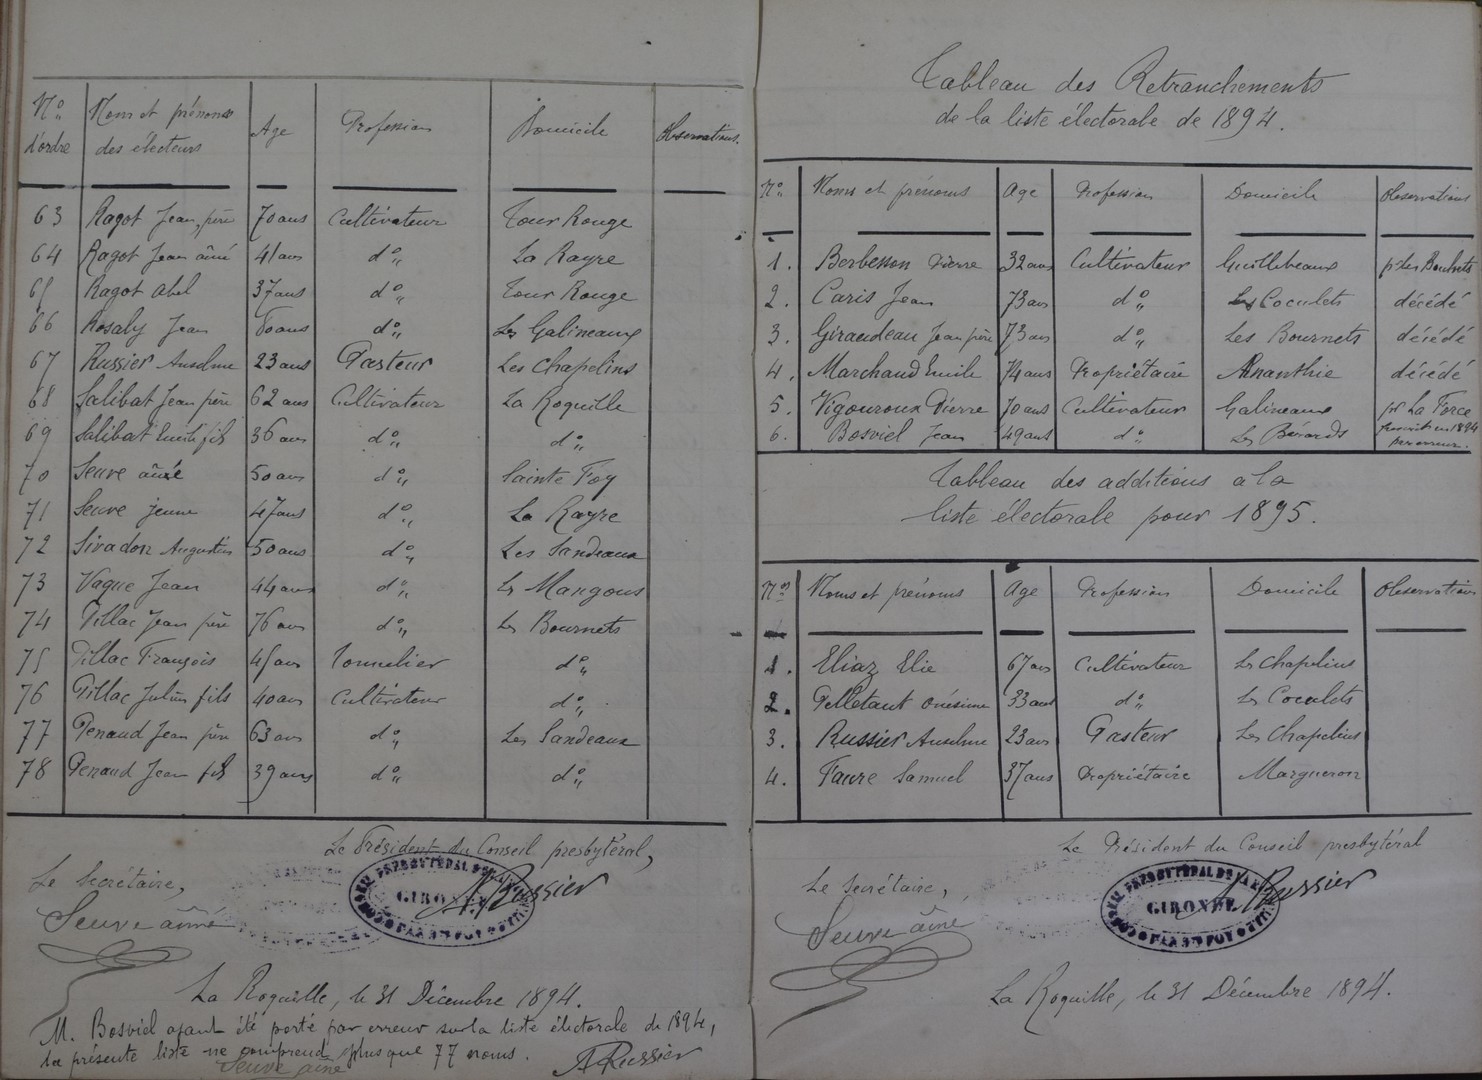 Nº d'ordre | Noms et prénoms des électeurs | Age | Profession | Domicile | Observations.
63 | Ragot Jean, père | 70 ans | Cultivateur | Tour Rouge
64 | Ragot Jean aîné | 41 ans | dº" | La Rayre
65 | Ragot Abel | 37 ans | dº" | Tour Rouge
66 | Rosaly Jean | ans | dº" | Les Galineaux
67 | Russier Anselme | 23 ans | Pasteur | Les Chapelins
68 | Salibat Jean père | 62 ans | Cultivateur | La Roquille
69 | Salibat fils | 36 ans | dº" | dº"
70 | Seuve aîné | 50 ans | dº" | Sainte Foy
71 | Seuve jeune | 47 ans | dº" | La Rayre
72 | Sivadon Augustin | 50 ans | dº" | Les Sandeaux
73 | Vague Jean | 44 ans | dº" | Les Mangous
74 | Pillac Jean père | 76 ans | dº" | Les Bournets
75 | Pillac François | 45 ans | Tonnelier | dº"
76 | Pillac Julien fils | 40 ans | Cultivateur | dº"
77 | Penaud Jean père | 63 ans | dº" | Les Sandeaux
78 | Penaud Jean fils | 39 ans | dº" | dº"
Le Président du Conseil presbytéral,
Le Secrétaire,
GIRONDE
A. Russier
Seuve aîné
La Roquille, le 31 Décembre 1894.
M. Bosviel ayant été porté par erreur sur la liste électorale de 1894,
la présente liste ne comprend plus que 77 noms.
Seuve aîné
A Russier
Tableau des Retranchements
de la liste électorale de 1894.
Nº | Noms et prénoms | Age | Profession | Domicile | Observations
1. | Berbesson Pierre | 32 ans | Cultivateur | Guillebeaux
2. | Caris Jean | 73 ans | dº" | Les Coculets | décédé
3. | Giraudeau Jean père | 73 ans | dº" | Les Bournets | décédé
4. | Marchand Emile | 74 ans | Propriétaire | Ananthie | décédé
5. | Vigouroux Pierre | 70 ans | Cultivateur | Galineaux | pr La Force
6. | Bosviel Jean | 49 ans | dº" | Les Bérards | inscrit en 1894 par erreur.
Tableau des additions a la
liste électorale pour 1895.
Nos | Noms et prénoms | Age | Profession | Domicile | Observations
1. | Eliaz Elie | 67 ans | Cultivateur | Les Chapelins
2. | Pelletant Onésime | 33 ans | dº" | Les Coculets
3. | Russier Anselme | 23 ans | Pasteur | Les Chapelins
4. | Faure Samuel | 37 ans | Propriétaire | Margueron
Le Président du Conseil presbytéral
Le Secrétaire,
GIRONDE
A Russier
Seuve aîné
La Roquille, le 31 Décembre 1894.